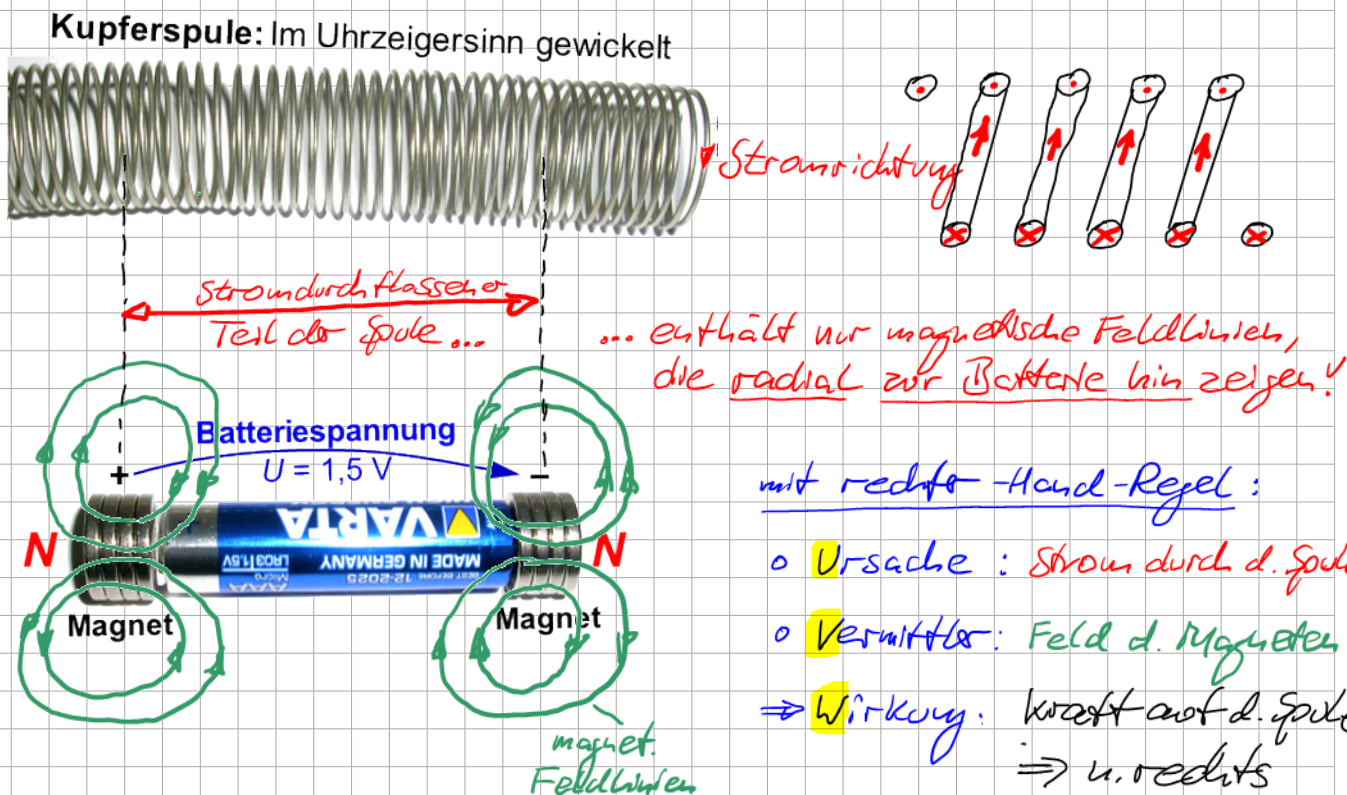 Kupferspule: Im Uhrzeigersinn gewickelt
Stromrichtung
stromdurchflossener
Teil der Spule...
... enthält nur magnetische Feldlinien,
die radial zur Batterie hin zeigen!
Batteriespannung
U = 1,5 V
+
−
N
N
VARTA
MADE IN GERMANY
LR03 1.5V
BEST BEFORE
12-2025
Micro
AAA
Magnet
Magnet
magnet.
Feldlinien
mit rechter-Hand-Regel:
o Ursache: Strom durch d. Spul
o Vermittler: Feld d. Magneten
⇒ Wirkung: Kraft auf d. Spule
⇒ n. rechts